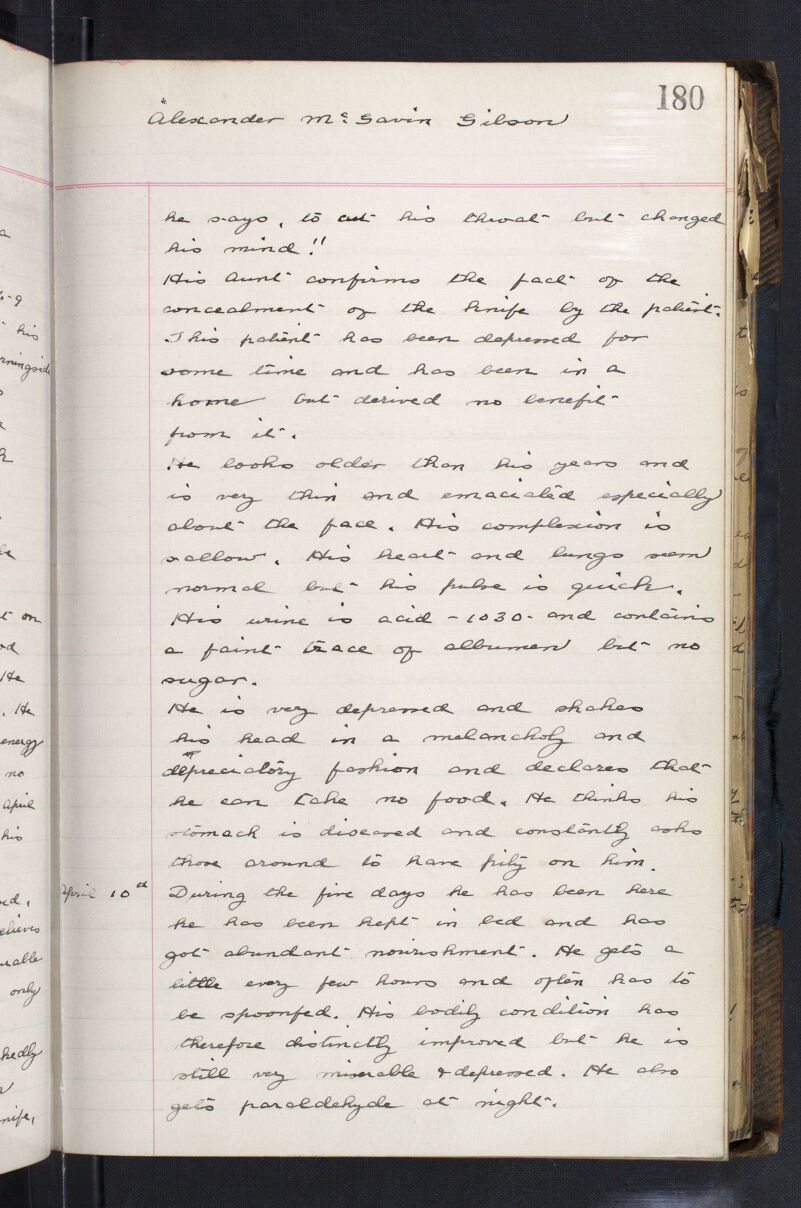 180
Alexander Mc Gavin Gibson
he says, to cut his throat but changed
his mind!!
His Aunt confirms the fact of the
concealment of the knife by the patient.
This patient has been depressed for
some time and has been in a
home but derived no benefit
from it.
He looks older than his years and
is very thin and emaciated especially
about the face. His complexion is
sallow. His heart and lungs seem
normal but his pulse is quick.
His urine is acid - 1030 - and contains
a faint trace of albumen but no
sugar.
He is very depressed and shakes
his head in a melancholy and
depreciatory fashion and declares that
he can take no food. He thinks his
stomach is diseased and constantly asks
those around to have pity on him.
April 10th During the five days he has been here
he has been kept in bed and has
got abundant nourishment. He gets a
little every few hours and often has to
be spoonfed. His bodily condition has
therefore distinctly improved but he is
still very miserable & depressed. He also
gets paraldehyde at night.